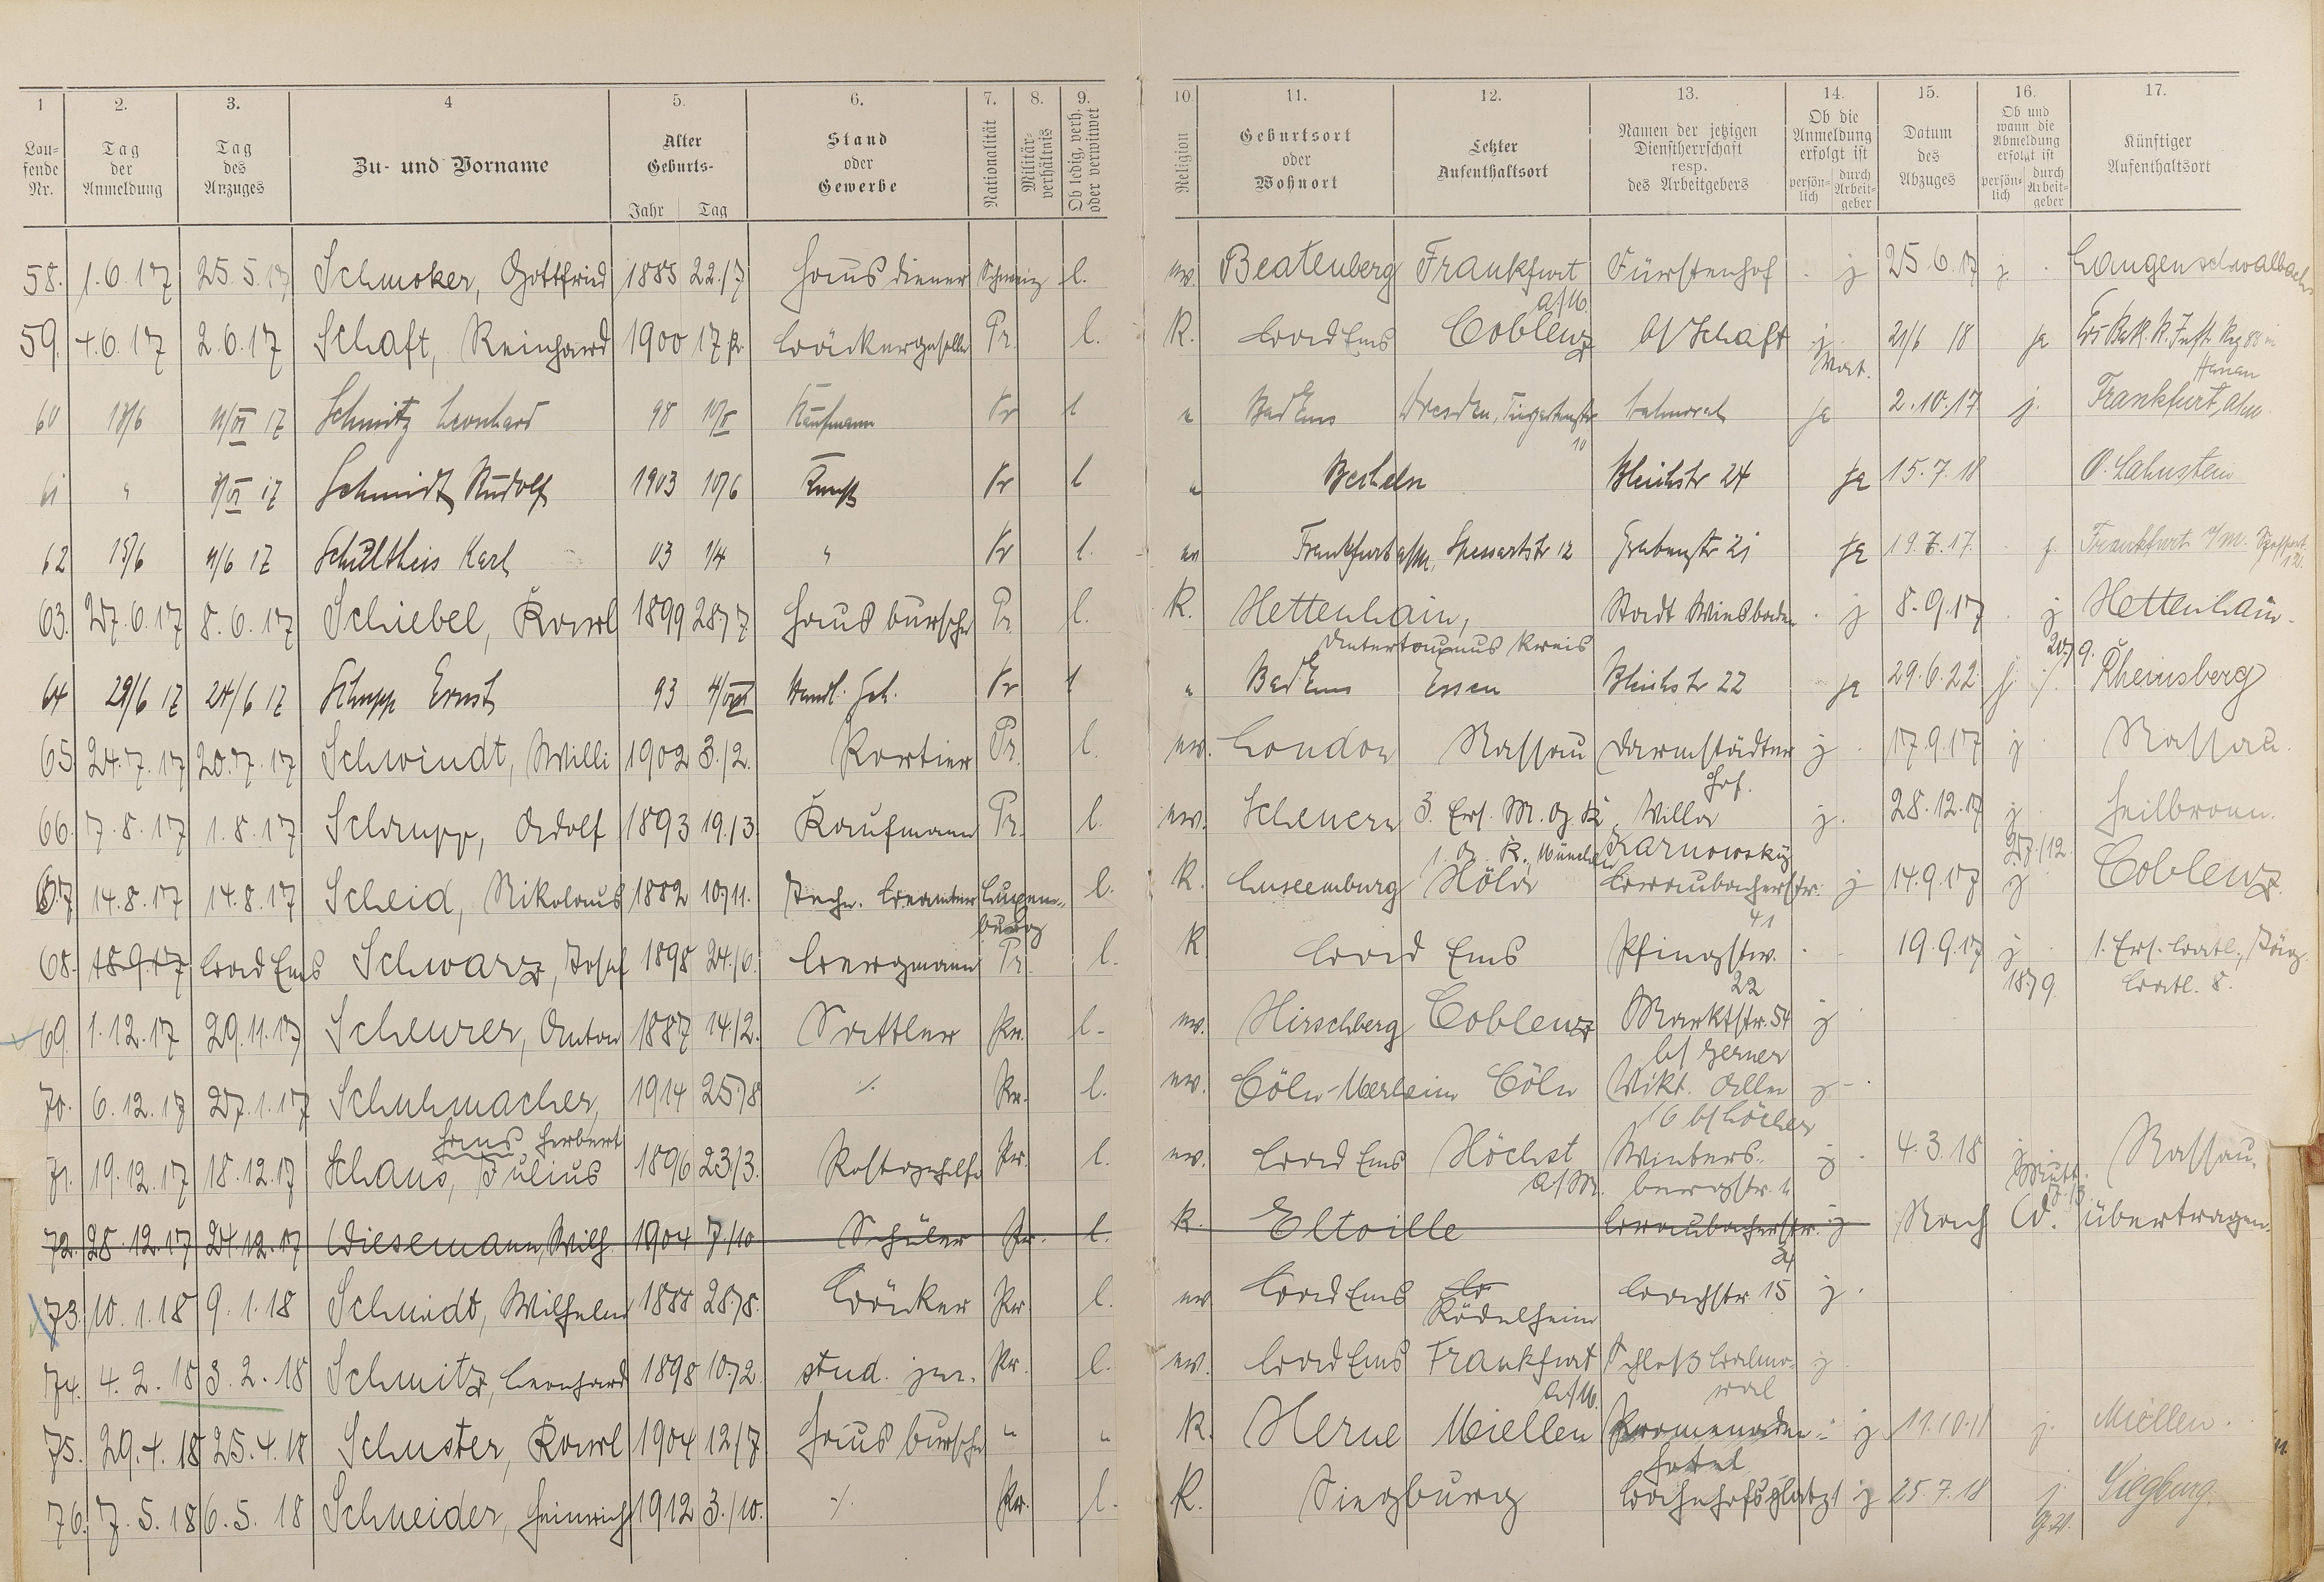 1 2. 3. 4 5. 6. 7. 8. 9. 10 11. 12. 13. 14. 15. 16. 17.
Lau-fende Nr. Tag der Anmeldung Tag des Anzuges Zu- und Vorname Alter Geburts- Jahr Tag Stand oder Gewerbe Nationalität Militär-verhältnis Ob ledig, verh. oder verwitwet Religion Geburtsort oder Wohnort Letzter Aufenthaltsort Namen der jetzigen Dienstherrschaft resp. des Arbeitgebers Ob die Anmeldung erfolgt ist persön-lich durch Arbeit-geber Datum des Abzuges Ob und wann die Abmeldung erfolgt ist persön-lich durch Arbeit-geber Künftiger Aufenthaltsort
58. 1.6.17 25.5.17 Schmoker, Gottfried 1885 22./7 Hausdiener Schweiz l. ev. Beatenberg Frankfurt a/M. Fürstenhof j 25.6.17 j. Langenschwalbach
59. 4.6.17 2.6.17 Schaft, Reinhard 1900 17 Bäckergeselle Pr. l. K. Bad Ems Coblenz b/ Schaft j 21/6 18 ja Ers Batl. R. Inft. Reg 88 in Hanau
60 13/6 11/VI 17 Schmitz Leonhard 98 10/ Kaufmann Pr l " Bad Ems Dresden, 10 Balmoral ja 2.10.17 j. Frankfurt a/m
61 " /VI 17 Schmidt Rudolf 1903 10/6 Pr l " Becheln Bleichstr 24 ja 15.7.18 O. Lahnstein
62 15/6 11/6 17 Schultheis Karl 03 1/4 " Pr l. ev Frankfurt a/M, Spessartstr 12 Grabenstr 21 ja 19.7.17. j. Frankfurt a/M. 12.
63. 27.6.17 8.6.17 Schiebel, Karl 1899 28./7 Hausbursche Pr. l. K. Hettenhain, Untertaunus Kreis Stadt Wiesbaden j 8.9.17 j 20./9. Hettenhain.
64 29/6 17 24/6 17 Schupp Ernst 93 4/ Handl. Geh. Pr l " Bad Ems Essen Bleichstr 22 ja 29.6.22 j Rheinsberg
65 24.7.17 20.7.17 Schwindt, Willi 1902 3./2. Portier Pr. l. ev. London Nassau Darmstädter Hof. j 17.9.17 j Nassau.
66. 7.8.17 1.8.17 Schrupp, Adolf 1893 19./3. Kaufmann Pr. l. ev. Scheuern 3. Ers. M. G. K. 1. A. K., München Villa Karnowsky j. 28.12.17 j 27./12. Heilbronn.
67 14.8.17 14.8.17 Scheid, Nikolaus 1882 10./11. Techn. Beamter Luxem-burg l. K. Luxemburg Köln Braubacherstr. 41 j 14.9.17 j Coblenz.
68. 18.9.17 Bad Ems Schwarz, Josef 1898 24./6. Bergmann Pr. l. K Bad Ems Pfingstw. 22 19.9.17 j 18./9. 1. Ers. Batl., Batl. 8.
69. 1.12.17 29.11.17 Scheurer, Anton 1887 14./2. Sattler Pr. l. ev. Hirschberg Coblenz Marktstr. 54 b/ Zerner j
70. 6.12.17 27.1.17 Schuhmacher, Hans Herbert 1914 25./8 ./. Pr. l. ev. Cöln-Merheim Cöln Vikt. Allee 16 b/ Löcher j
71. 19.12.17 18.12.17 Schaus, Julius 1896 23/3. Postgehilfe Pr. l. ev. Bad Ems Höchst a/M. Winters-bergstr. 4 j 4.3.18 j Nassau.
72. 28.12.17 24.12.17 Wiesemann, Wilh. 1904 7/10 Schüler Pr. l. K. Eltville Braubacherstr. 21 j Nach W. übertragen.
73. 10.1.18 9.1.18 Schmidt, Wilhelm 1888 28./8. Bäcker Pr l. ev Bad Ems Rödelheim Bachstr 15 j.
74. 4.2.18 3.2.18 Schmitz, Leonhard 1898 10./2. stud. jur. Pr. l. ev. Bad Ems Frankfurt a/M. Schloß Balmo-ral j
75. 29.4.18 25.4.18 Schuster, Karl 1904 12/7 Hausbursche " " K. Herne Miellen Promenaden-Hotel j. 11.10.18 j. Miellen.
76. 7.5.18 6.5.18 Schneider, Heinrich 1912 3./10. ./. Pr. l. K. Siegburg Bahnhofsplatz 1 j 25.7.18 j. Siegburg.